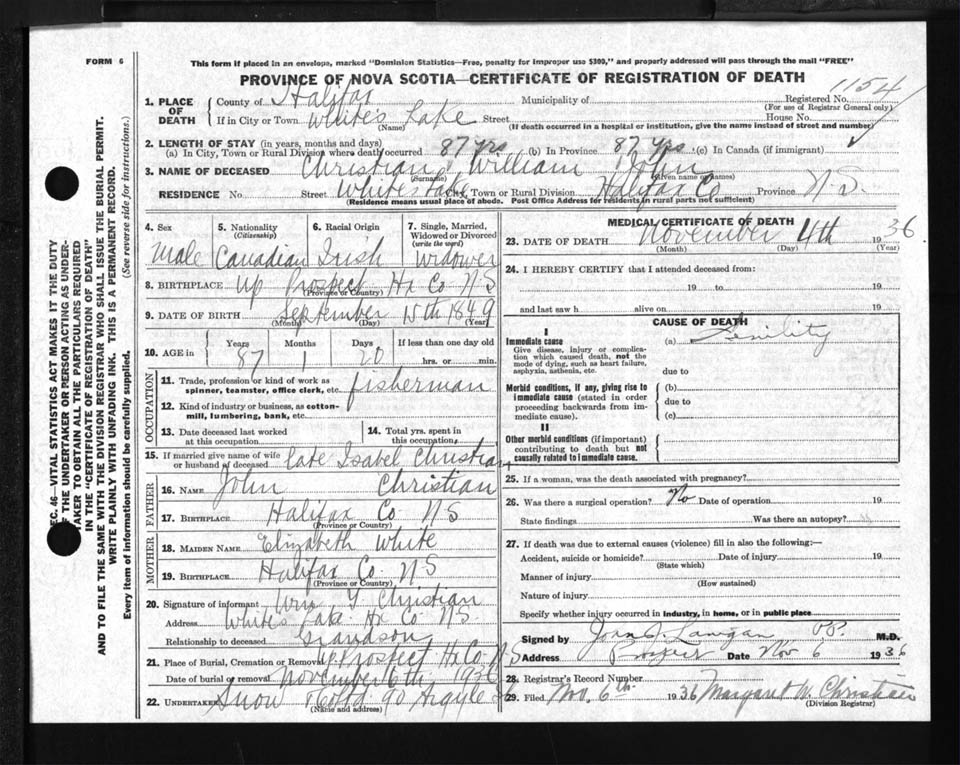 FORM 6
This form if placed in an envelope, marked "Dominion Statistics—Free, penalty for improper use $300," and properly addressed will pass through the mail "FREE"
PROVINCE OF NOVA SCOTIA—CERTIFICATE OF REGISTRATION OF DEATH
1154
1. PLACE OF DEATH
County of Halifax Municipality of Registered No.
(For use of Registrar General only)
If in City or Town White's Lake Street House No.
(Name) (If death occurred in a hospital or institution, give the name instead of street and number)
2. LENGTH OF STAY (in years, months and days)
(a) In City, Town or Rural Division where death occurred 87 yrs (b) In Province 87 yrs (c) In Canada (if immigrant)
3. NAME OF DECEASED Christian William John
(Surname) (Given name or names)
RESIDENCE No. Street White's Lake City, Town or Rural Division Halifax Co Province N.S.
(Residence means usual place of abode. Post Office Address for residents in rural parts not sufficient)
4. Sex
Male
5. Nationality
(Citizenship)
Canadian
6. Racial Origin
Irish
7. Single, Married, Widowed or Divorced
(write the word)
Widower
8. BIRTHPLACE Up Prospect Hx Co N S
(Province or Country)
9. DATE OF BIRTH September 15th 1849
(Month) (Day) (Year)
10. AGE in
Years Months Days If less than one day old
87 1 20 hrs. or min.
OCCUPATION
11. Trade, profession or kind of work as spinner, teamster, office clerk, etc. fisherman
12. Kind of industry or business, as cotton-mill, lumbering, bank, etc.
13. Date deceased last worked at this occupation
14. Total yrs. spent in this occupation
15. If married give name of wife or husband of deceased late Isabel Christian
FATHER
16. NAME John Christian
17. BIRTHPLACE Halifax Co N S
(Province or Country)
MOTHER
18. MAIDEN NAME Elizabeth White
19. BIRTHPLACE Halifax Co. N S
(Province or Country)
20. Signature of informant Wm Christian
Address White's Lake Hx Co. N.S.
Relationship to deceased Grandson
21. Place of Burial, Cremation or Removal Up Prospect Hx Co. N S
Date of burial or removal November 6th 1936
22. UNDERTAKER Snow & Co Ltd 90 Argyle
(Name and address)
MEDICAL CERTIFICATE OF DEATH
23. DATE OF DEATH November 4th 1936
(Month) (Day) (Year)
24. I HEREBY CERTIFY that I attended deceased from:
19 to 19
and last saw h alive on 19
CAUSE OF DEATH
I
Immediate cause
Give disease, injury or complication which caused death, not the mode of dying, such as heart failure, asphyxia, asthenia, etc.
(a) Senility
due to
Morbid conditions, if any, giving rise to immediate cause (stated in order proceeding backwards from immediate cause).
(b)
due to
(c)
II
Other morbid conditions (if important) contributing to death but not causally related to immediate cause.
25. If a woman, was the death associated with pregnancy?
26. Was there a surgical operation? No Date of operation 19
State findings Was there an autopsy?
27. If death was due to external causes (violence) fill in also the following:—
Accident, suicide or homicide? Date of injury 19
(State which)
Manner of injury
(How sustained)
Nature of injury
Specify whether injury occurred in industry, in home, or in public place
Signed by P.P. M.D.
Address Date Nov 6 1936
28. Registrar's Record Number
29. Filed Nov. 6th 1936 Margaret W. Christian
(Division Registrar)
SEC. 46—VITAL STATISTICS ACT MAKES IT THE DUTY
OF THE UNDERTAKER OR PERSON ACTING AS UNDER-
TAKER TO OBTAIN ALL THE PARTICULARS REQUIRED
IN THE "CERTIFICATE OF REGISTRATION OF DEATH"
AND TO FILE THE SAME WITH THE DIVISION REGISTRAR WHO SHALL ISSUE THE BURIAL PERMIT.
WRITE PLAINLY WITH UNFADING INK. THIS IS A PERMANENT RECORD.
Every item of information should be carefully supplied. (See reverse side for instructions.)